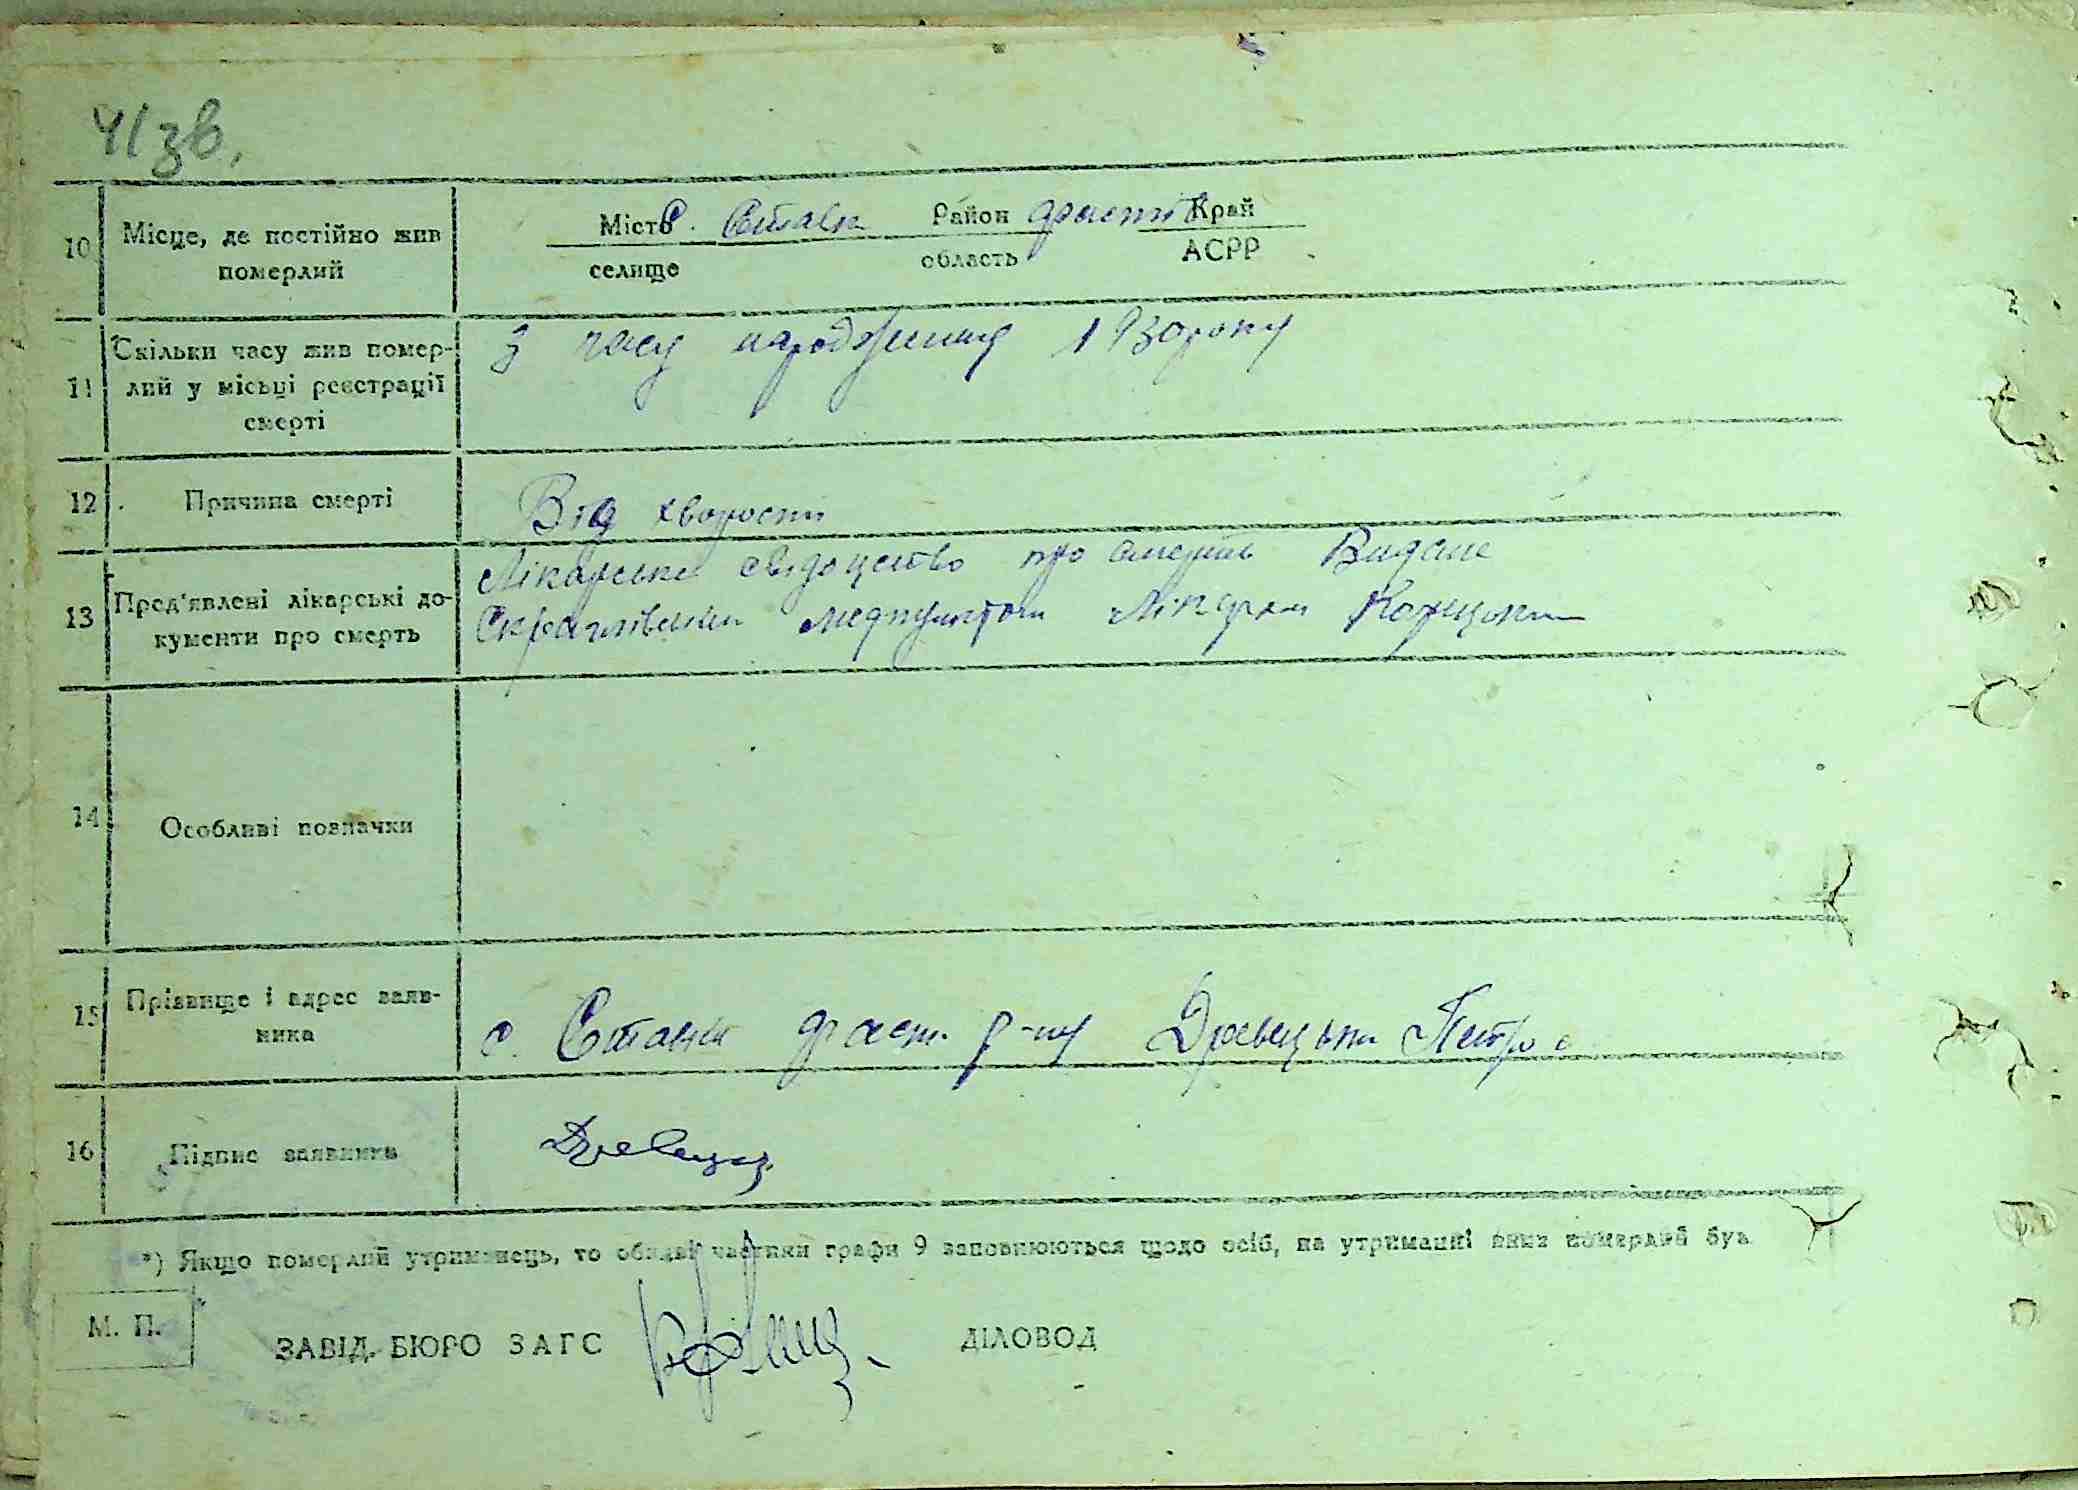 41зв.
10 Місце, де постійно жив померлий
Місто с. Ставки Район Фаст Край
селище область АСРР
11 Скільки часу жив помер-
лий у місьці реєстрації
смерті
З часу народження 1930 року
12 Причина смерті Від хворости
13 Пред'явлені лікарські до-
кументи про смерть
Лікарське свідоцство про смерть Видане
медпунктом Лікарем
14 Особливі позначки
15 Прізвище і адрес заяв-
ника
с. Ставки фаст. р-ну Древецьки Петро
16 Підпис заявника Древецкі
*) Якщо померлий утриманець, то обидві частини графи 9 заповнюються щодо осіб, на утриманні яких померлий був
М. П.
ЗАВІД. БЮРО ЗАГС ДІЛОВОД